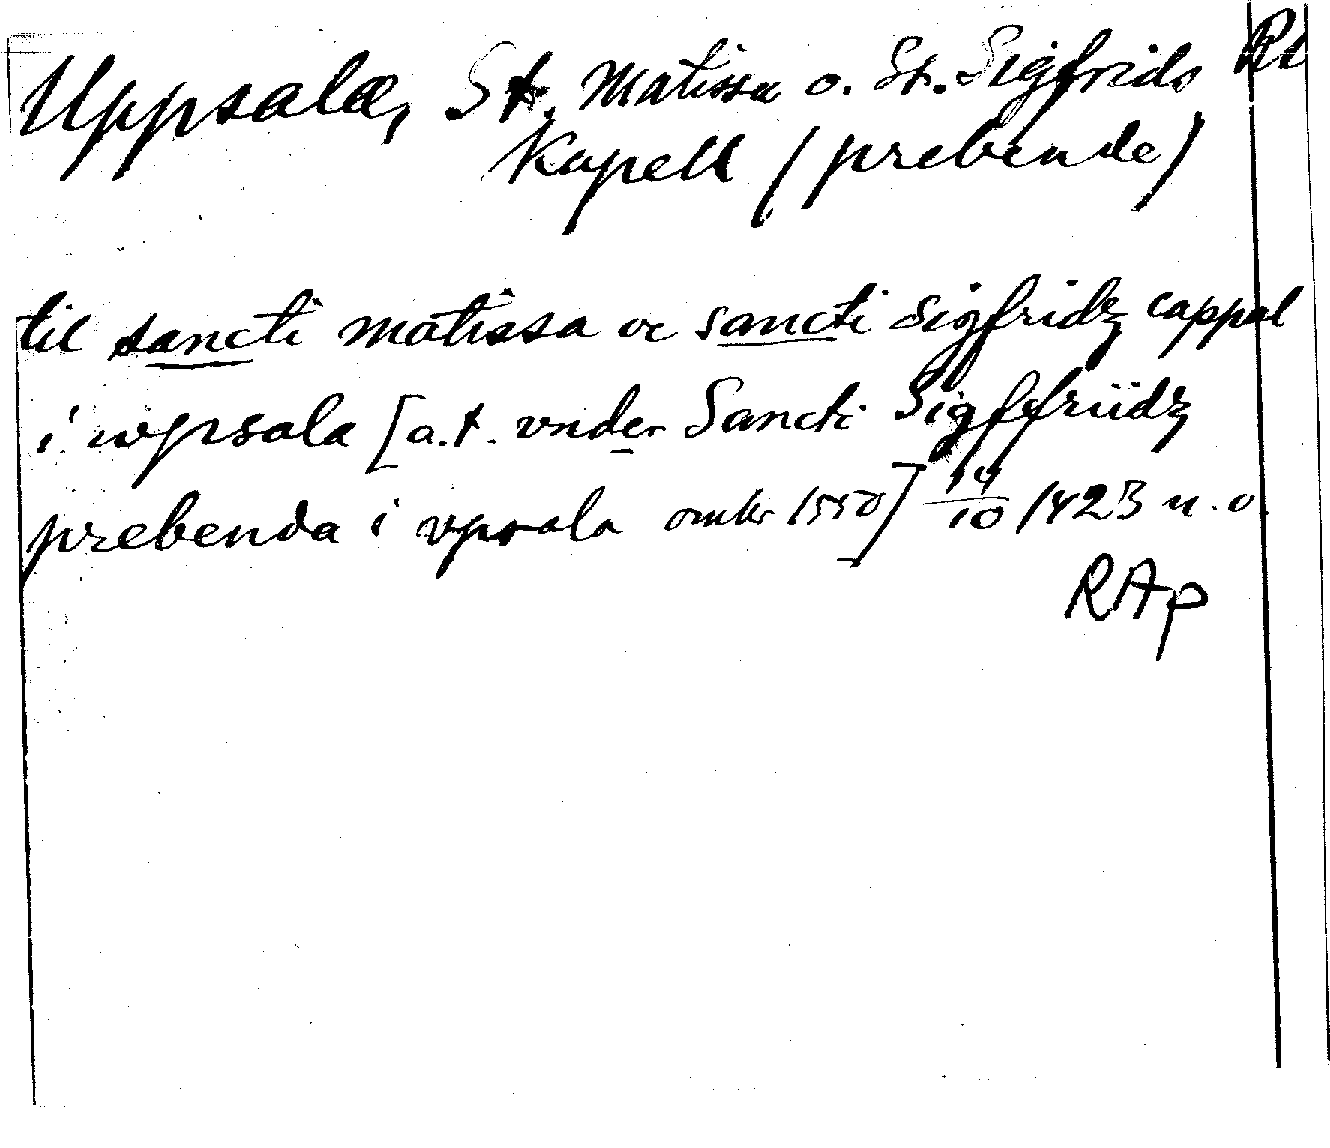 Uppsala, St. Matissa o. St. Sigfrids
Kapell (prebende)
til sancti matissa oc sancti sigfridz cappal
i wpsala [a.t. vnder Sancti Sigffriidz
prebenda i vpsala omkr 1550] 14/10 1423 u. o.
RAp